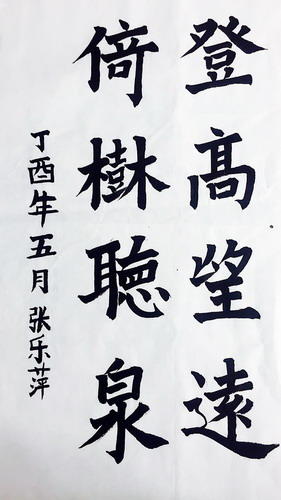 登高望遠
倚樹聽泉
丁酉年五月张乐萍